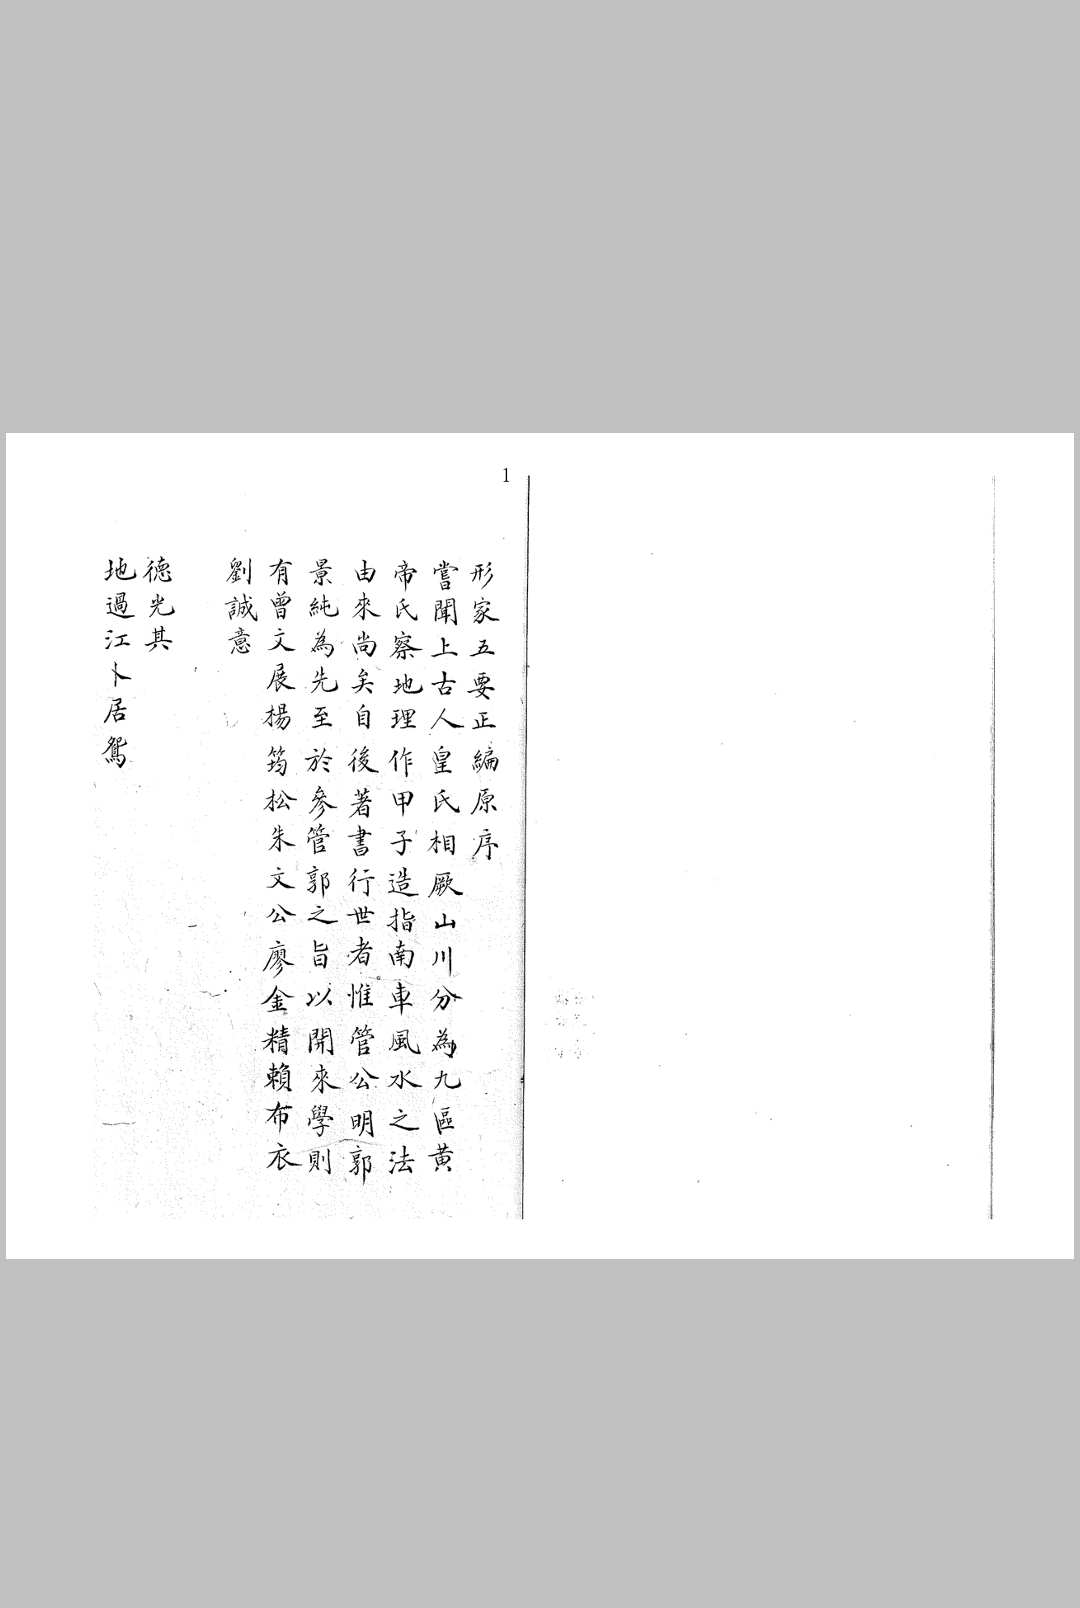 1
形家五要正編原序
嘗聞上古人皇氏相厥山川分為九區黄
帝氏察地理作甲子造指南車風水之法
由來尚矣自後著書行世者惟管公明郭
景純為先至於參管郭之旨以開來學則
有曾文展楊筠松朱文公廖金精賴布衣
劉誠意
德光其
地過江卜居鴛